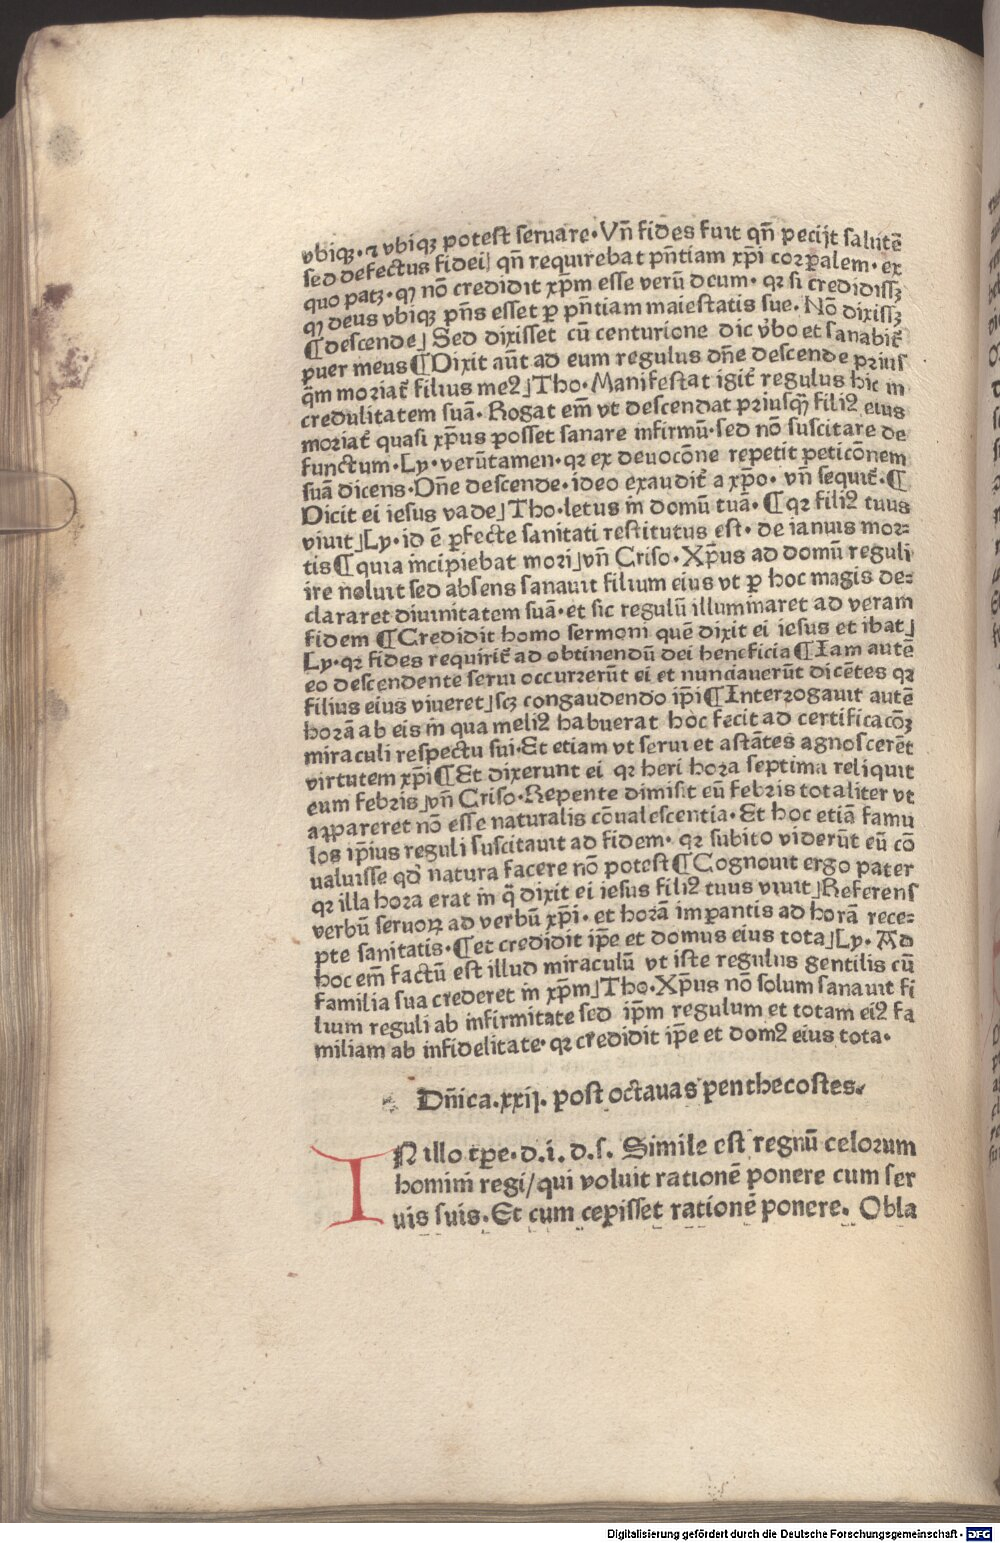 vbiqꝫ · ⁊ vbiqꝫ potest seruare · Vn̄ fides fuit qn̄ pecijt salutē
sed defectus fidei] qn̄ requirebat pn̄tiam xp̄i corꝑalem · ex
quo patꝫ · ꝙ nō credidit xp̄m esse verū deum · qꝛ si credidissꝫ
ꝙ deus vbiqꝫ pn̄s esset ꝑ pn̄tiam maiestatis sue · Nō dixissꝫ
¶ descende] Sed dixisset cū centurione dic v̓bo et sanabit̄
puer meus ¶ Dixit aūt ad eum regulus dn̄e descende prius
qm̄ moriat̄ filius meꝰ] Tho · Manifestat igit̄ regulus hic in
credulitatem suā · Rogat em̄ vt descendat priusqꝫ filiꝰ eius
moriat̄ quasi xp̄us posset sanare infirmū · sed nō suscitare de
functum · Ly · verūtamen · qꝛ ex deuocōne repetit peticōnem
suā dicens · Dn̄e descende · ideo exaudit̄ a xp̄o · vn̄ sequit̄ · ¶
Dicit ei iesus vade] Tho · letus in domū tuā · ¶ qꝛ filiꝰ tuus
viuit] Ly · id ē ꝑfecte sanitati restitutus est · de ianuis mor⸗
tis ¶ quia incipiebat mori] vn̄ Criso · Xp̄us ad domū reguli
ire noluit sed absens sanauit filium eius vt ꝑ hoc magis de⸗
clararet diuinitatem suā · et sic regulū illuminaret ad veram
fidem ¶ Credidit homo sermoni quē dixit ei iesus et ibat]
Ly · qꝛ fides requirit̄ ad obtinendū dei beneficia ¶ Iam autē
eo descendente serui occurrerūt ei et nunciauerūt dicētes qꝛ
filius eius viueret] scꝫ congaudendo ip̄i ¶ Interrogauit autē
horā ab eis in qua meliꝰ habuerat hoc fecit ad certificacōꝫ
miraculi respectu sui · Et etiam vt serui et astātes agnoscerēt
virtutem xp̄i ¶ Et dixerunt ei qꝛ heri hora septima reliquit
eum febris] vn̄ Criso · Repente dimisit eū febris totaliter vt
appareret nō esse naturalis cōualescentia · Et hoc etiā famu
los ip̄ius reguli suscitauit ad fidem · qꝛ subito viderūt eū cō
ualuisse qd̓ natura facere nō potest ¶ Cognouit ergo pater
qꝛ illa hora erat in q̄ dixit ei iesus filiꝰ tuus viuit] Referens
verbū seruoꝝ ad verbū xp̄i · et horā imꝑantis ad horā rece⸗
pte sanitatis · ¶ et credidit ip̄e et domus eius tota] Ly · Ad
hoc em̄ factū est illud miraculū vt iste regulus gentilis cū
familia sua crederet in xp̄m] Tho · Xp̄us nō solum sanauit fi
lium reguli ab infirmitate sed ip̄m regulum et totam eiꝰ fa
miliam ab infidelitate · qꝛ credidit ip̄e et domꝰ eius tota ·
Dn̄ica · xxij · post octauas penthecostes ·
IN illo tꝑe · d · i · d · s · Simile est regnū celorum
homini regi / qui voluit rationē ponere cum ser
uis suis · Et cum cepisset rationē ponere · Obla
Digitalisierung gefördert durch die Deutsche Forschungsgemeinschaft - DFG